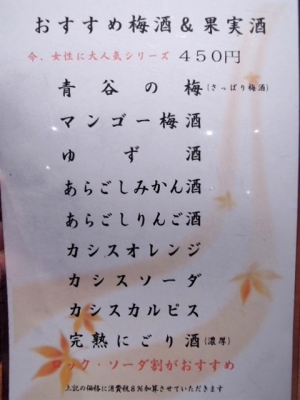 おすすめ梅酒&果実酒
今、女性に大人気シリーズ 450円
青谷の梅(さっぱり梅酒)
マンゴー梅酒
ゆず酒
あらごしみかん酒
あらごしりんご酒
カシスオレンジ
カシスソーダ
カシスカルピス
完熟にごり酒(濃厚)
ロック・ソーダ割がおすすめ
上記の価格に消費税8%加算させていただきます